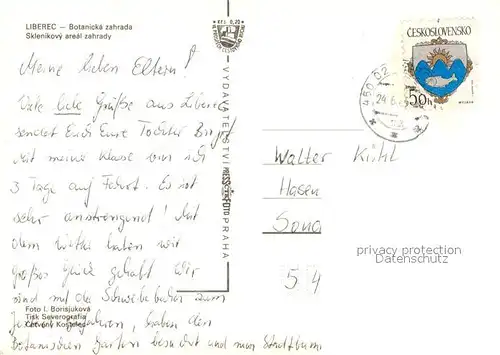 LIBEREC — Botanická zahrada
Skleníkový areál zahrady
Meine lieben Eltern!
Viele liebe Grüße aus Liberec
sendet Euch Eure Tochter
Mit meine Klasse bin ich
3 Tage auf Fahrt. Es ist
sehr anstrengend! Mit
dem Wetter haben wir
großes Glück gehabt. Wir
sind mit der Schwebebahn zum
gefahren, haben den
Botanischen Garten besucht und
Foto I. Borisjuková
Tisk Severografia
Červený Kostelec
VYDAVATELSTVÍ
PRESSFOTO
PRAHA
ČESKOSLOVENSKO
50h
460 02
Walter
Hasen
54
privacy protection
Datenschutz